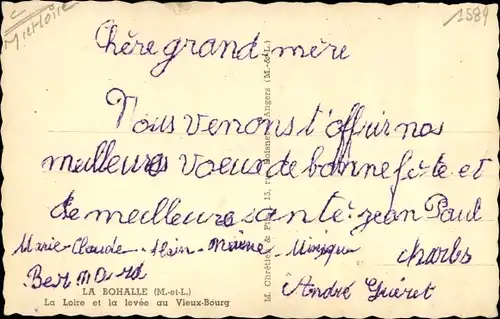 M. et Loire
1584
Chère grand-mère
Nous venons t'offrir nos
meilleures voeux de bonne fête et
de meilleure santé. jean Paul
Marie-Claude - Alain - Monique charles
Bernard
André Guéret
LA BOHALLE (M.-et-L.)
La Loire et la levée au Vieux-Bourg
M. Chrétien & Fils, 15, rue Angers (M.-&-L.)